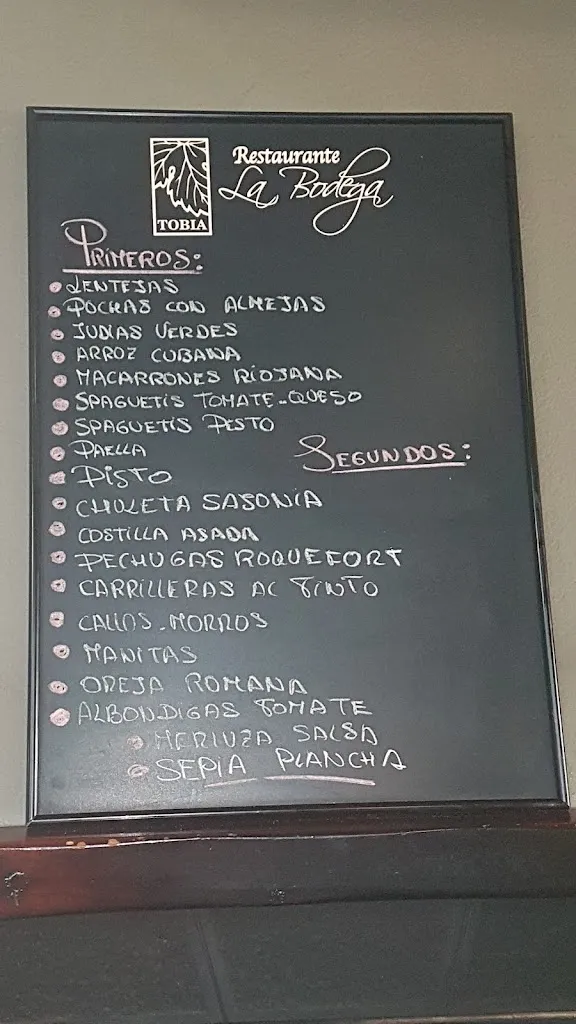 TOBIA
Restaurante
La Bodega
PRIMEROS:
LENTEJAS
POCHAS CON ALMEJAS
JUDIAS VERDES
ARROZ CUBANA
MACARRONES RIOJANA
SPAGUETIS TOMATE-QUESO
SPAGUETIS PESTO
PAELLA
SEGUNDOS:
PISTO
CHULETA SASONIA
COSTILLA ASADA
PECHUGAS ROQUEFORT
CARRILLERAS AL TINTO
CALLOS-MORROS
MANITAS
OREJA ROMANA
ALBONDIGAS TOMATE
MERLUZA SALSA
SEPIA PLANCHA